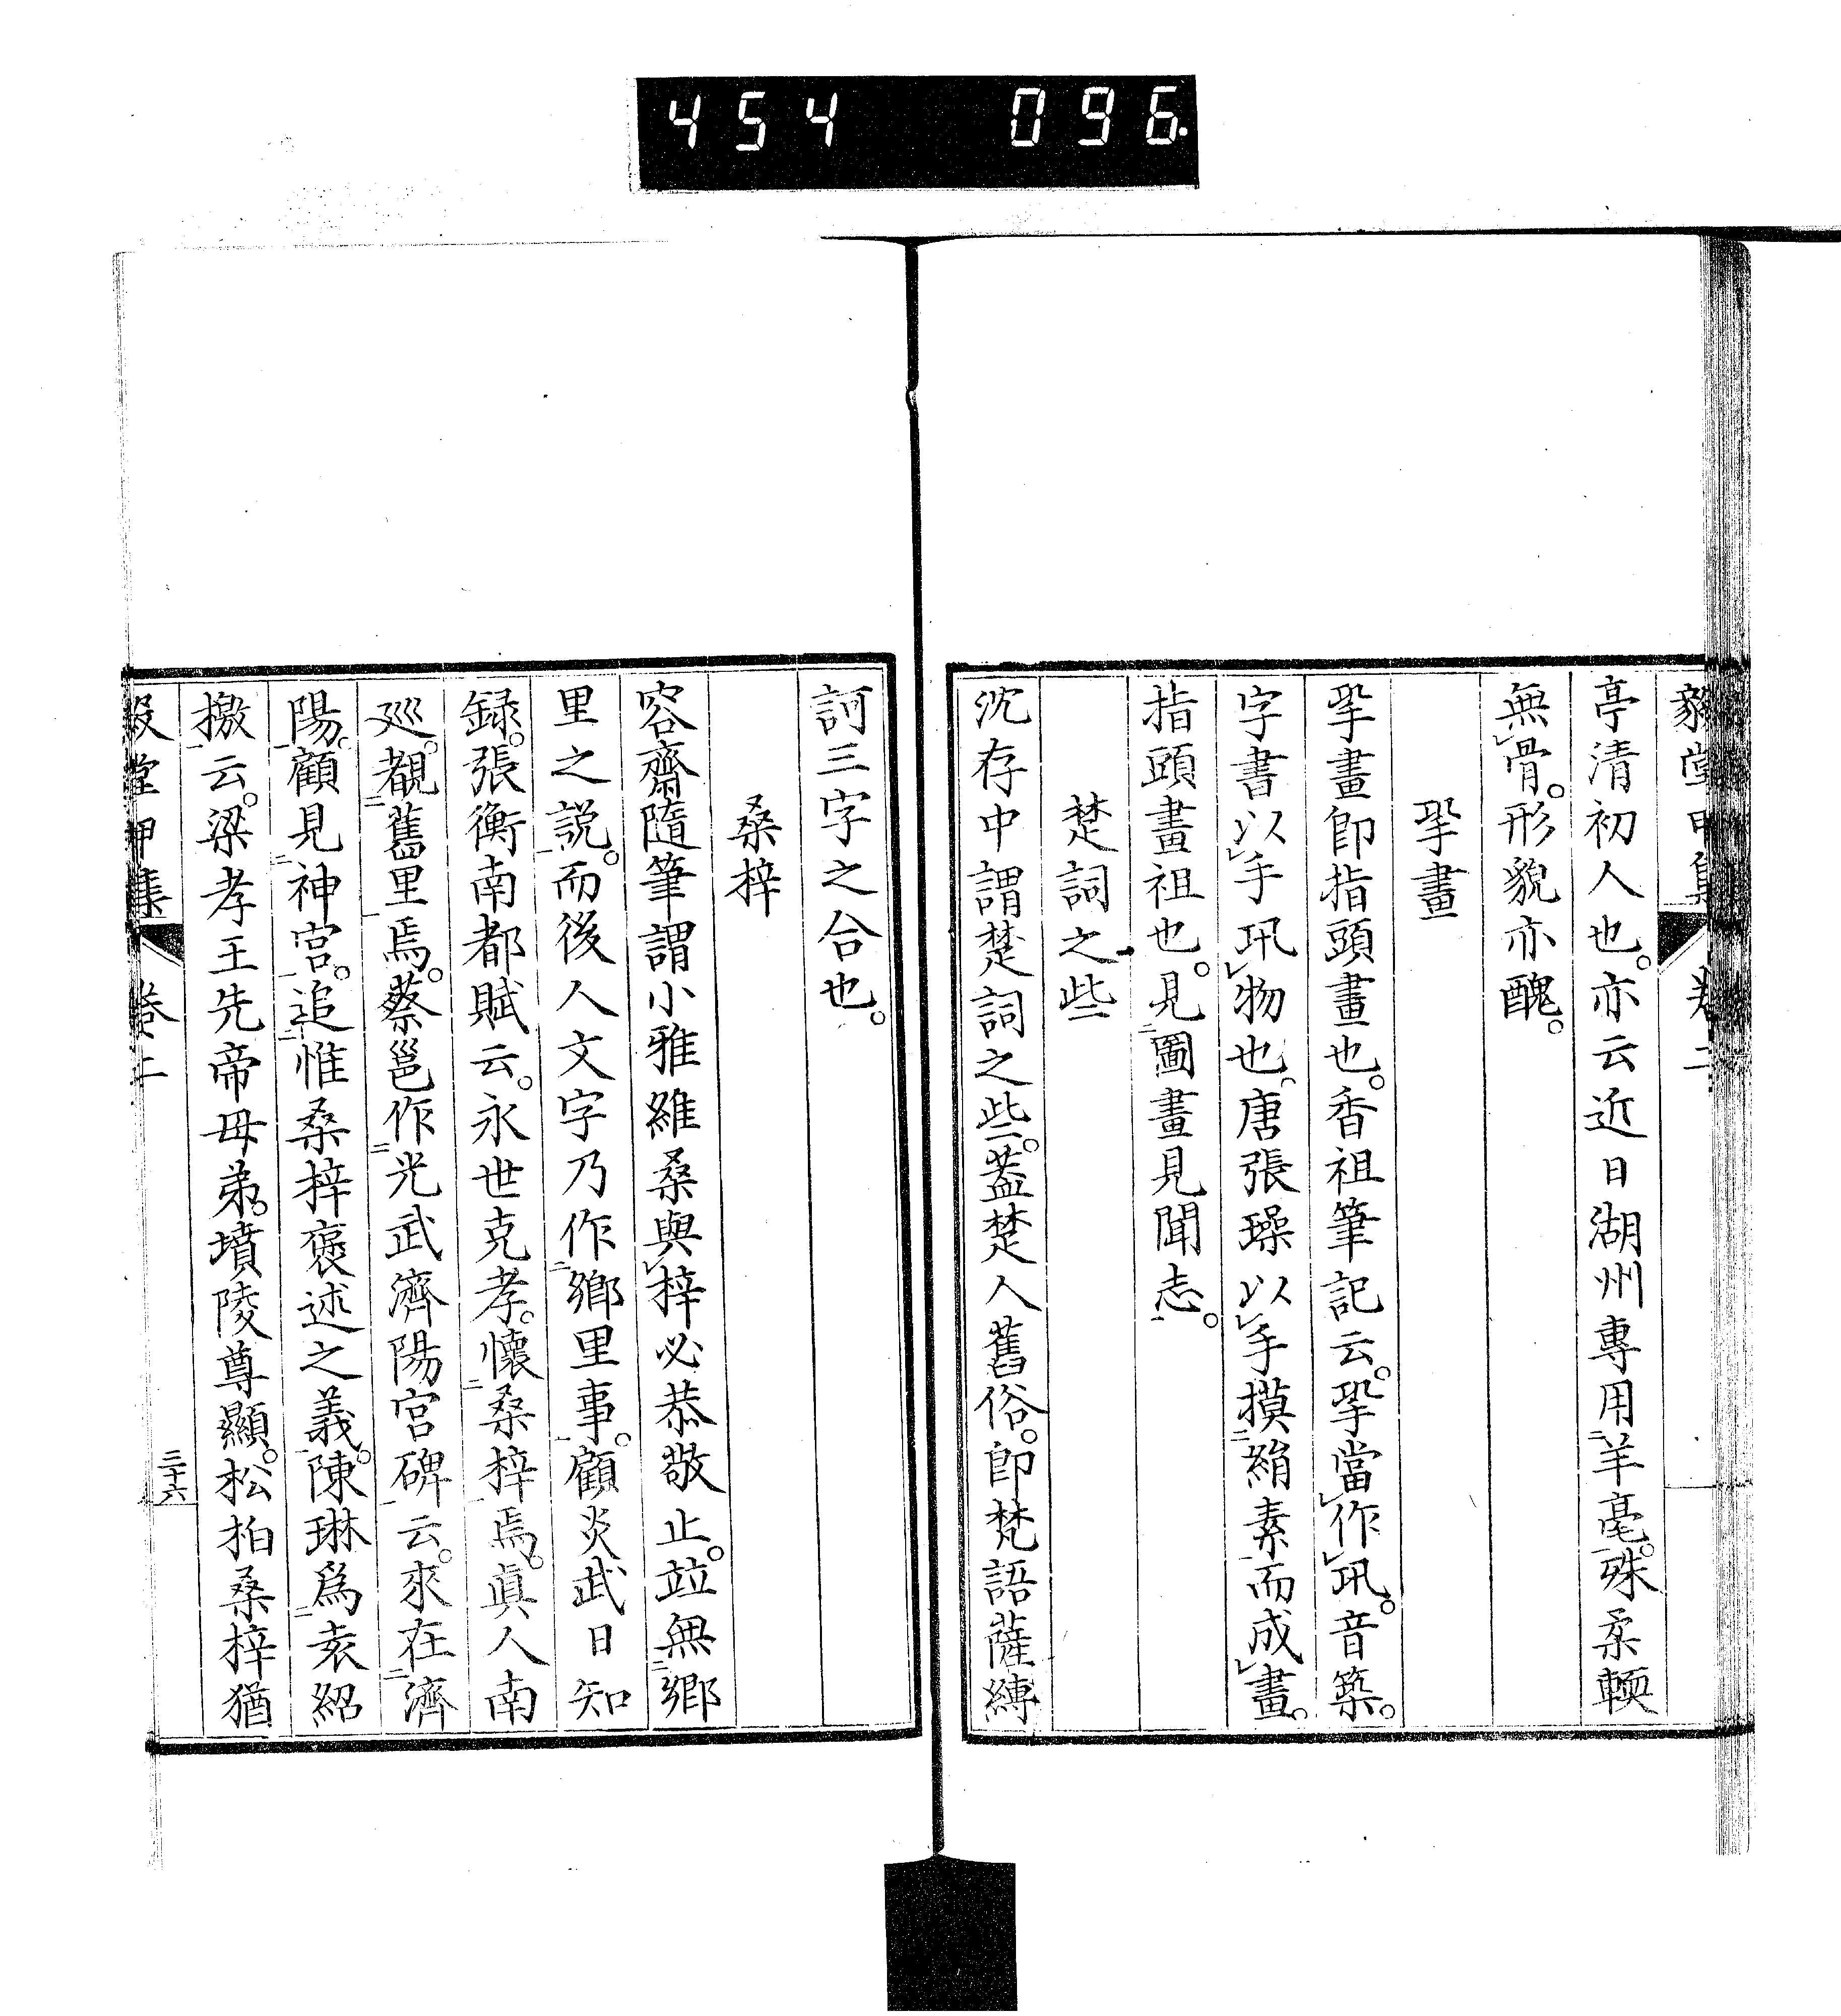 454 096.
毅堂甲集 卷二
亭清初人也。亦云近日湖州專用羊毫。殊柔輭
無骨。形貌亦醜。
㧬畫
㧬畫卽指頭畫也。香祖筆記云。㧬當作巩。音築。
字書以手巩物也、唐張璪以手摸絹素而成畫。
指頭畫祖也。見圖畫見聞志。
楚詞之些
沈存中謂楚詞之些。蓋楚人舊俗。卽梵語薩縛
訶三字之合也。
桑梓
容齋隨筆謂小雅維桑與梓必恭敬止。竝無鄉
里之說。而後人文字乃作鄉里事。顧炎武日知
録。張衡南都賦云。永世克孝。懷桑梓焉。眞人南
巡。覩舊里焉。蔡邕作光武濟陽宮碑云。來在濟
陽。顧見神宮。追惟桑梓褒述之義。陳琳爲袁紹
檄云。梁孝王先帝母弟。墳陵尊顯。松柏桑梓猶
毅堂甲集 卷二 三十六